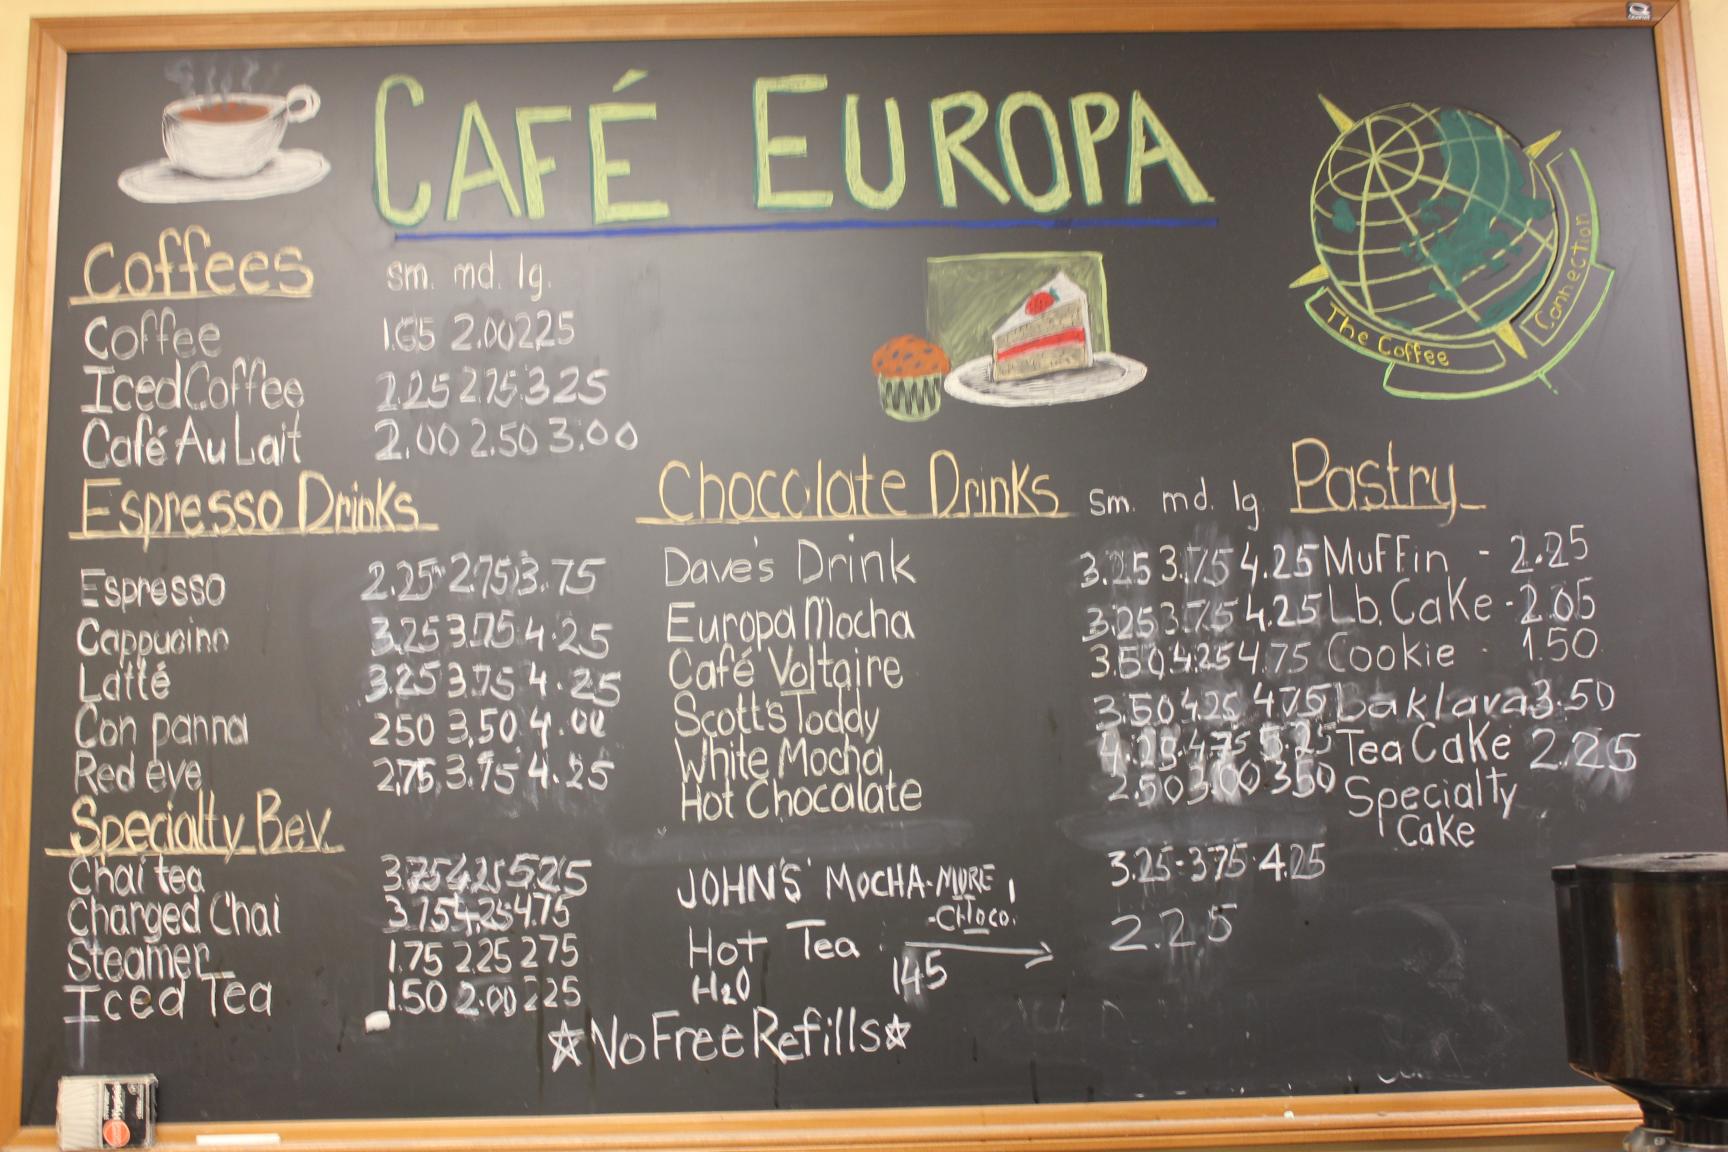 CAFÉ EUROPA
The Coffee
Connection
Coffees sm. md. lg.
Coffee 1.65 2.00 2.25
Iced Coffee 2.25 2.75 3.25
Café Au Lait 2.00 2.50 3.00
Espresso Drinks
Espresso 2.25 2.75 3.75
Cappucino 3.25 3.75 4.25
Latté 3.25 3.75 4.25
Con panna 250 3.50 4.00
Red eye 2.75 3.75 4.25
Specialty Bev.
Chai tea 3.75 4.25 5.25
Charged Chai 3.75 4.25 4.75
Steamer 1.75 2.25 275
Iced Tea 1.50 2.00 225
Chocolate Drinks sm. md. lg.
Dave's Drink 3.25 3.75 4.25
Europa Mocha 3.25 3.75 4.25
Café Voltaire 3.50 4.25 4.75
Scott's Toddy 3.50 4.25 4.75
White Mocha 4.25 4.75 5.25
Hot Chocalate 2.50 3.00 350
JOHN'S' MOCHA-MORE 3.25-3.75 4.25
-CHOCO.
Hot Tea 2.25
H2O 1.45
Pastry
Muffin - 2.25
Lb. Cake - 2.05
Cookie - 1.50
Baklava 3.50
Tea Cake 2.25
Specialty
Cake
☆No Free Refills☆